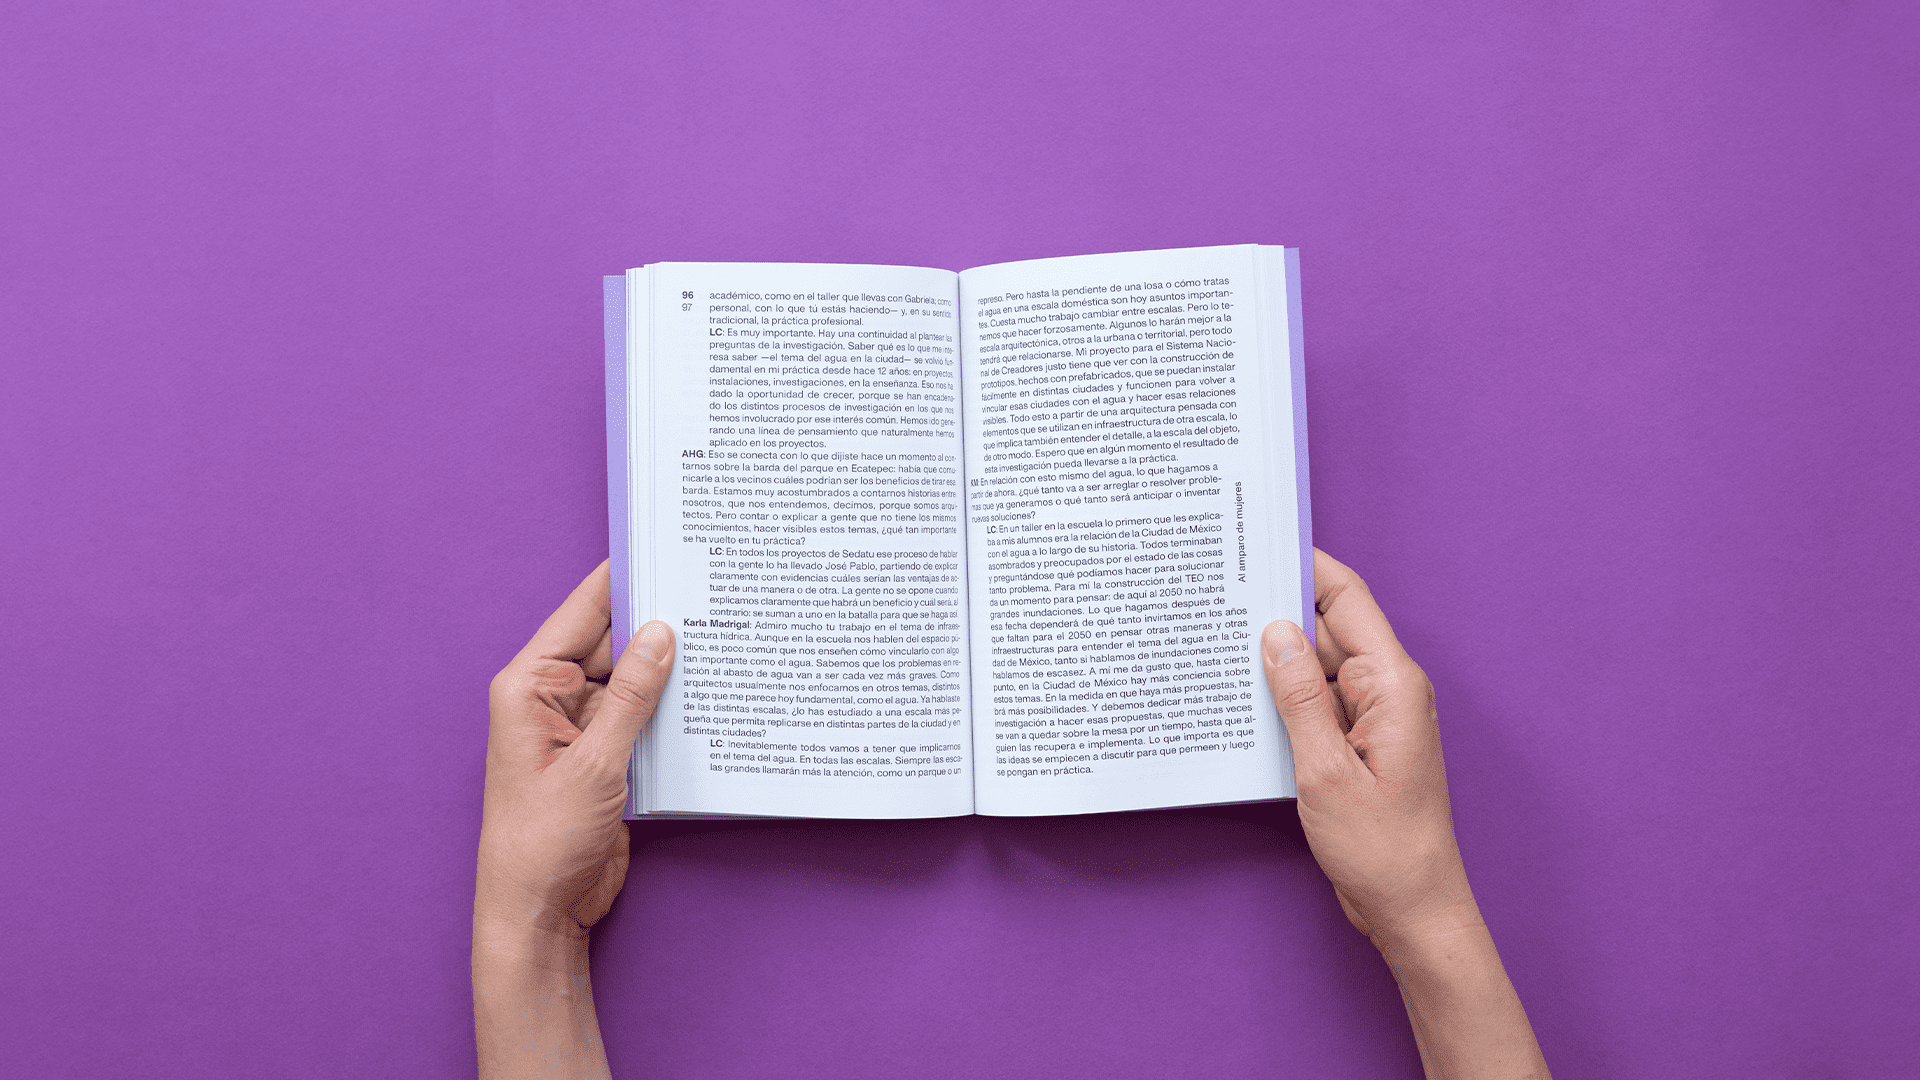 96
97
académico, como en el taller que llevas con Gabriela; como
personal, con lo que tú estás haciendo— y, en su sentido
tradicional, la práctica profesional.
LC: Es muy importante. Hay una continuidad al plantear las
preguntas de la investigación. Saber qué es lo que me inte-
resa saber —el tema del agua en la ciudad— se volvió fun-
damental en mi práctica desde hace 12 años: en proyectos,
instalaciones, investigaciones, en la enseñanza. Eso nos ha
dado la oportunidad de crecer, porque se han encadena-
do los distintos procesos de investigación en los que nos
hemos involucrado por ese interés común. Hemos ido gene-
rando una línea de pensamiento que naturalmente hemos
aplicado en los proyectos.
AHG: Eso se conecta con lo que dijiste hace un momento al con-
tarnos sobre la barda del parque en Ecatepec: había que comu-
nicarle a los vecinos cuáles podrían ser los beneficios de tirar esa
barda. Estamos muy acostumbrados a contarnos historias entre
nosotros, que nos entendemos, decimos, porque somos arqui-
tectos. Pero contar o explicar a gente que no tiene los mismos
conocimientos, hacer visibles estos temas, ¿qué tan importante
se ha vuelto en tu práctica?
LC: En todos los proyectos de Sedatu ese proceso de hablar
con la gente lo ha llevado José Pablo, partiendo de explicar
claramente con evidencias cuáles serían las ventajas de ac-
tuar de una manera o de otra. La gente no se opone cuando
explicamos claramente que habrá un beneficio y cuál será, al
contrario: se suman a uno en la batalla para que se haga así.
Karla Madrigal: Admiro mucho tu trabajo en el tema de infraes-
tructura hídrica. Aunque en la escuela nos hablen del espacio pú-
blico, es poco común que nos enseñen cómo vincularlo con algo
tan importante como el agua. Sabemos que los problemas en re-
lación al abasto de agua van a ser cada vez más graves. Como
arquitectos usualmente nos enfocamos en otros temas, distintos
a algo que me parece hoy fundamental, como el agua. Ya hablaste
de las distintas escalas, ¿lo has estudiado a una escala más pe-
queña que permita replicarse en distintas partes de la ciudad y en
distintas ciudades?
LC: Inevitablemente todos vamos a tener que implicarnos
en el tema del agua. En todas las escalas. Siempre las esca-
las grandes llamarán más la atención, como un parque o un
represo. Pero hasta la pendiente de una losa o cómo tratas
el agua en una escala doméstica son hoy asuntos importan-
tes. Cuesta mucho trabajo cambiar entre escalas. Pero lo te-
nemos que hacer forzosamente. Algunos lo harán mejor a la
escala arquitectónica, otros a la urbana o territorial, pero todo
tendrá que relacionarse. Mi proyecto para el Sistema Nacio-
nal de Creadores justo tiene que ver con la construcción de
prototipos, hechos con prefabricados, que se puedan instalar
fácilmente en distintas ciudades y funcionen para volver a
vincular esas ciudades con el agua y hacer esas relaciones
visibles. Todo esto a partir de una arquitectura pensada con
elementos que se utilizan en infraestructura de otra escala, lo
que implica también entender el detalle, a la escala del objeto,
de otro modo. Espero que en algún momento el resultado de
esta investigación pueda llevarse a la práctica.
KM: En relación con esto mismo del agua, lo que hagamos a
partir de ahora, ¿qué tanto va a ser arreglar o resolver proble-
mas que ya generamos o qué tanto será anticipar o inventar
nuevas soluciones?
LC: En un taller en la escuela lo primero que les explica-
ba a mis alumnos era la relación de la Ciudad de México
con el agua a lo largo de su historia. Todos terminaban
asombrados y preocupados por el estado de las cosas
y preguntándose qué podíamos hacer para solucionar
tanto problema. Para mí la construcción del TEO nos
da un momento para pensar: de aquí al 2050 no habrá
grandes inundaciones. Lo que hagamos después de
esa fecha dependerá de qué tanto invirtamos en los años
que faltan para el 2050 en pensar otras maneras y otras
infraestructuras para entender el tema del agua en la Ciu-
dad de México, tanto si hablamos de inundaciones como si
hablamos de escasez. A mí me da gusto que, hasta cierto
punto, en la Ciudad de México hay más conciencia sobre
estos temas. En la medida en que haya más propuestas, ha-
brá más posibilidades. Y debemos dedicar más trabajo de
investigación a hacer esas propuestas, que muchas veces
se van a quedar sobre la mesa por un tiempo, hasta que al-
guien las recupera e implementa. Lo que importa es que
las ideas se empiecen a discutir para que permeen y luego
se pongan en práctica.
Al amparo de mujeres